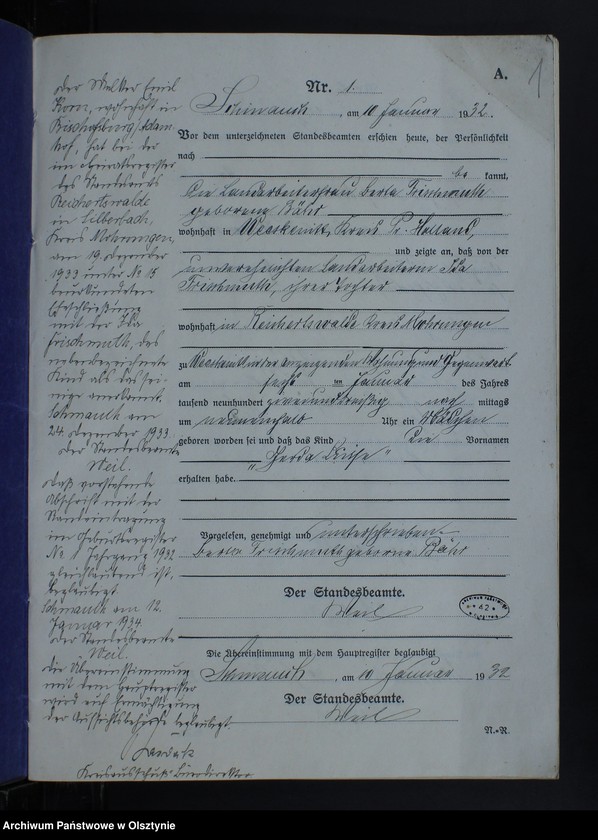 A.
1
Nr. 1.
Schmauch, am 10 Januar 1932.
Vor dem unterzeichneten Standesbeamten erschien heute, der Persönlichkeit
nach
be kannt,
die Landarbeiterfrau Berta Frischmuth
geborene Bähr
wohnhaft in Weeskenitt, Kreis Pr. Holland,
und zeigte an, daß von der
unverehelichten Landarbeiterin Ida
Frischmuth, ihrer Tochter
wohnhaft in Reichertswalde Kreis Mohrungen
zu Weeskenitt in der Anzeigenden Wohnung und Gegenwart
am sechs ten Januar des Jahres
tausend neunhundert zweiunddreißig nach mittags
um neuneinhalb Uhr ein Mädchen
geboren worden sei und daß das Kind die Vornamen
"Gerda
erhalten habe.
Vorgelesen, genehmigt und unterschrieben
Berta Frischmuth geborene Bähr
Der Standesbeamte.
Weil
Die Übereinstimmung mit dem Hauptregister beglaubigt
Schmauch, am 10 Januar 1932
Der Standesbeamte.
Weil
N.-R.
der Melker Emil
Korn, wohnhaft in
Bischofsburg/Adams
hof, hat bei der
im Heiratsregister
des Standesamts
Reichertswalde
in Silberbach,
Kreis Mohrungen,
am 19. Dezember
1933 unter No 15
beurkundeten
Eheschließung
mit der Ida
Frischmuth, das
nebenbezeichnete
Kind als das sei-
nige anerkannt.
Schmauch am
24. Dezember 1933.
Der Standesbeamte
Weil.
Daß vorstehende
Abschrift mit der
Randeintragung
im Geburtsregister
No 1 Jahrgang 1932
gleichlautend ist,
beglaubigt
Schmauch am 12.
Januar 1934.
Der Standesbeamte
Weil.
Die Übereinstimmung
mit dem Hauptregister
wird nach Ermächtigung
der Aufsichtsbehörde beglaubigt.
Kreisausschuß-Bürodirektor
Archiwum Państwowe w Olsztynie